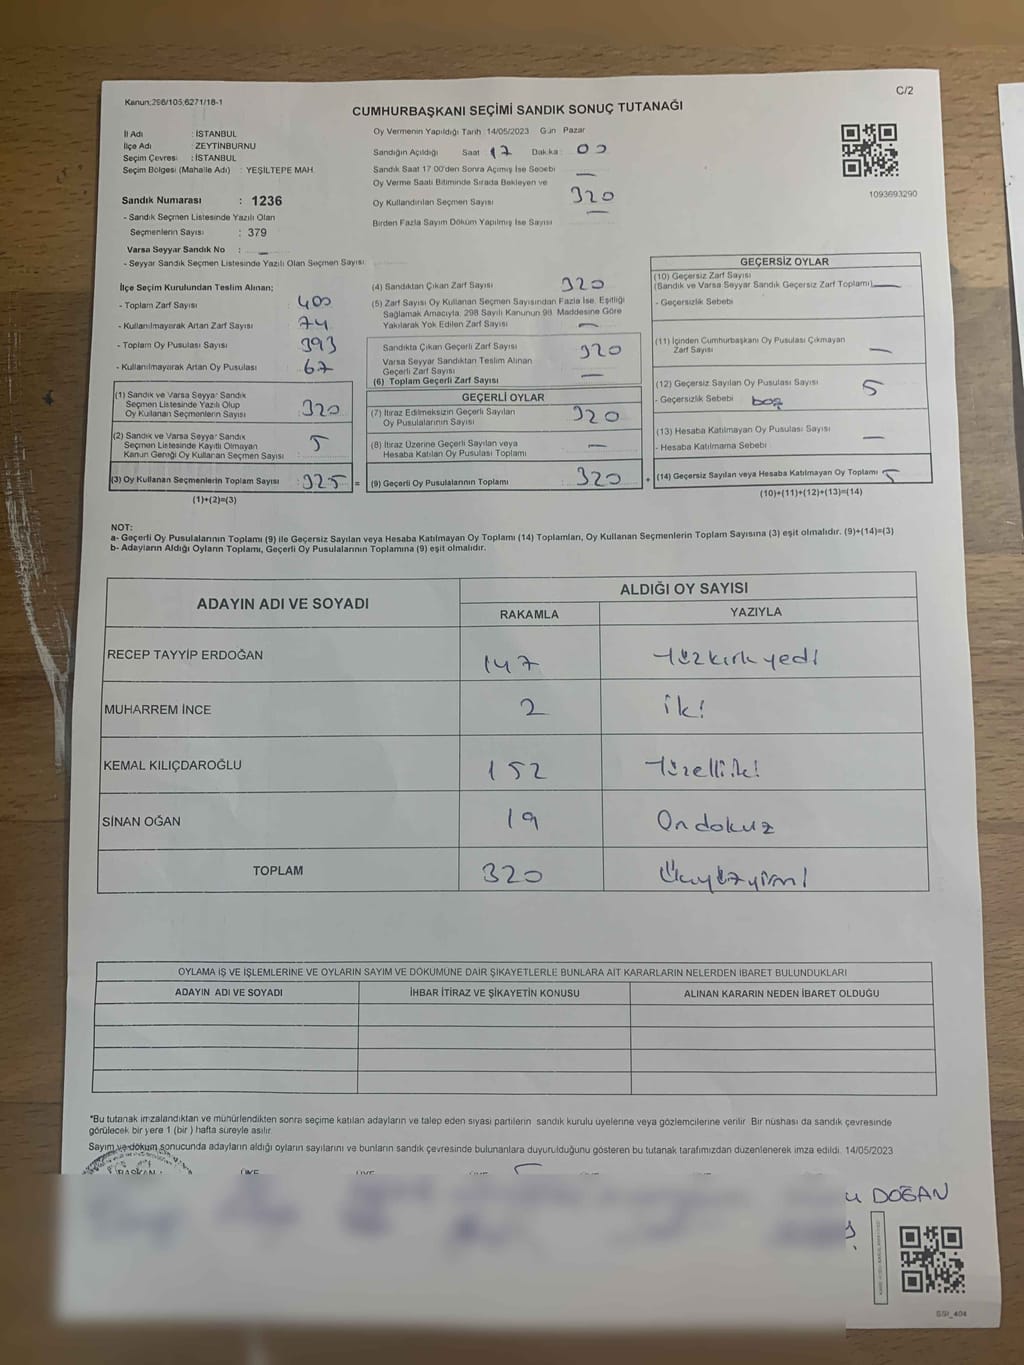 Kanun;298/105;6271/18-1
C/2
CUMHURBAŞKANI SEÇİMİ SANDIK SONUÇ TUTANAĞI
İl Adı : İSTANBUL
İlçe Adı : ZEYTİNBURNU
Seçim Çevresi : İSTANBUL
Seçim Bölgesi (Mahalle Adı) : YEŞİLTEPE MAH.
Oy Vermenin Yapıldığı Tarih : 14/05/2023 Gün : Pazar
Sandığın Açıldığı Saat : 17 Dakika : 00
Sandık Saat 17:00'den Sonra Açılmış İse Sebebi —
Oy Verme Saati Bitiminde Sırada Bekleyen ve
Oy Kullandırılan Seçmen Sayısı 320
Birden Fazla Sayım Döküm Yapılmış İse Sayısı —
1093693290
Sandık Numarası : 1236
- Sandık Seçmen Listesinde Yazılı Olan
Seçmenlerin Sayısı : 379
Varsa Seyyar Sandık No : —
- Seyyar Sandık Seçmen Listesinde Yazılı Olan Seçmen Sayısı:
İlçe Seçim Kurulundan Teslim Alınan;
- Toplam Zarf Sayısı : 400
- Kullanılmayarak Artan Zarf Sayısı : 74
- Toplam Oy Pusulası Sayısı : 393
- Kullanılmayarak Artan Oy Pusulası : 67
(1) Sandık ve Varsa Seyyar Sandık
Seçmen Listesinde Yazılı Olup
Oy Kullanan Seçmenlerin Sayısı : 320
(2) Sandık ve Varsa Seyyar Sandık
Seçmen Listesinde Kayıtlı Olmayan
Kanun Gereği Oy Kullanan Seçmen Sayısı : 5
(3) Oy Kullanan Seçmenlerin Toplam Sayısı : 325 =
(1)+(2)=(3)
(4) Sandıktan Çıkan Zarf Sayısı 320
(5) Zarf Sayısı Oy Kullanan Seçmen Sayısından Fazla İse, Eşitliği
Sağlamak Amacıyla, 298 Sayılı Kanunun 98. Maddesine Göre
Yakılarak Yok Edilen Zarf Sayısı : —
Sandıkta Çıkan Geçerli Zarf Sayısı : 320
Varsa Seyyar Sandıktan Teslim Alınan
Geçerli Zarf Sayısı : —
(6) Toplam Geçerli Zarf Sayısı
GEÇERLİ OYLAR
(7) İtiraz Edilmeksizin Geçerli Sayılan
Oy Pusulalarının Sayısı : 320
(8) İtiraz Üzerine Geçerli Sayılan veya
Hesaba Katılan Oy Pusulası Toplamı : —
(9) Geçerli Oy Pusulalarının Toplamı : 320 +
GEÇERSİZ OYLAR
(10) Geçersiz Zarf Sayısı
(Sandık ve Varsa Seyyar Sandık Geçersiz Zarf Toplamı) —
- Geçersizlik Sebebi
(11) İçinden Cumhurbaşkanı Oy Pusulası Çıkmayan
Zarf Sayısı —
(12) Geçersiz Sayılan Oy Pusulası Sayısı 5
- Geçersizlik Sebebi boş
(13) Hesaba Katılmayan Oy Pusulası Sayısı —
- Hesaba Katılmama Sebebi :
(14) Geçersiz Sayılan veya Hesaba Katılmayan Oy Toplamı 5
(10)+(11)+(12)+(13)=(14)
NOT:
a- Geçerli Oy Pusulalarının Toplamı (9) ile Geçersiz Sayılan veya Hesaba Katılmayan Oy Toplamı (14) Toplamları, Oy Kullanan Seçmenlerin Toplam Sayısına (3) eşit olmalıdır. (9)+(14)=(3)
b- Adayların Aldığı Oyların Toplamı, Geçerli Oy Pusulalarının Toplamına (9) eşit olmalıdır.
ADAYIN ADI VE SOYADI
ALDIĞI OY SAYISI
RAKAMLA YAZIYLA
RECEP TAYYİP ERDOĞAN 147 Yüzkırkyedi
MUHARREM İNCE 2 iki
KEMAL KILIÇDAROĞLU 152 Yüzelliiki
SİNAN OĞAN 19 Ondokuz
TOPLAM 320 Üçyüzyirmi
OYLAMA İŞ VE İŞLEMLERİNE VE OYLARIN SAYIM VE DÖKÜMÜNE DAİR ŞİKAYETLERLE BUNLARA AİT KARARLARIN NELERDEN İBARET BULUNDUKLARI
ADAYIN ADI VE SOYADI İHBAR İTİRAZ VE ŞİKAYETİN KONUSU ALINAN KARARIN NEDEN İBARET OLDUĞU
*Bu tutanak imzalandıktan ve mühürlendikten sonra seçime katılan adayların ve talep eden siyasi partilerin sandık kurulu üyelerine veya gözlemcilerine verilir. Bir nüshası da sandık çevresinde
görülecek bir yere 1 (bir) hafta süreyle asılır.
Sayım ve döküm sonucunda adayların aldığı oyların sayılarını ve bunların sandık çevresinde bulunanlara duyurulduğunu gösteren bu tutanak tarafımızdan düzenlenerek imza edildi. 14/05/2023
BAŞKAN ÜYE ÜYE
DOĞAN
SSI_404